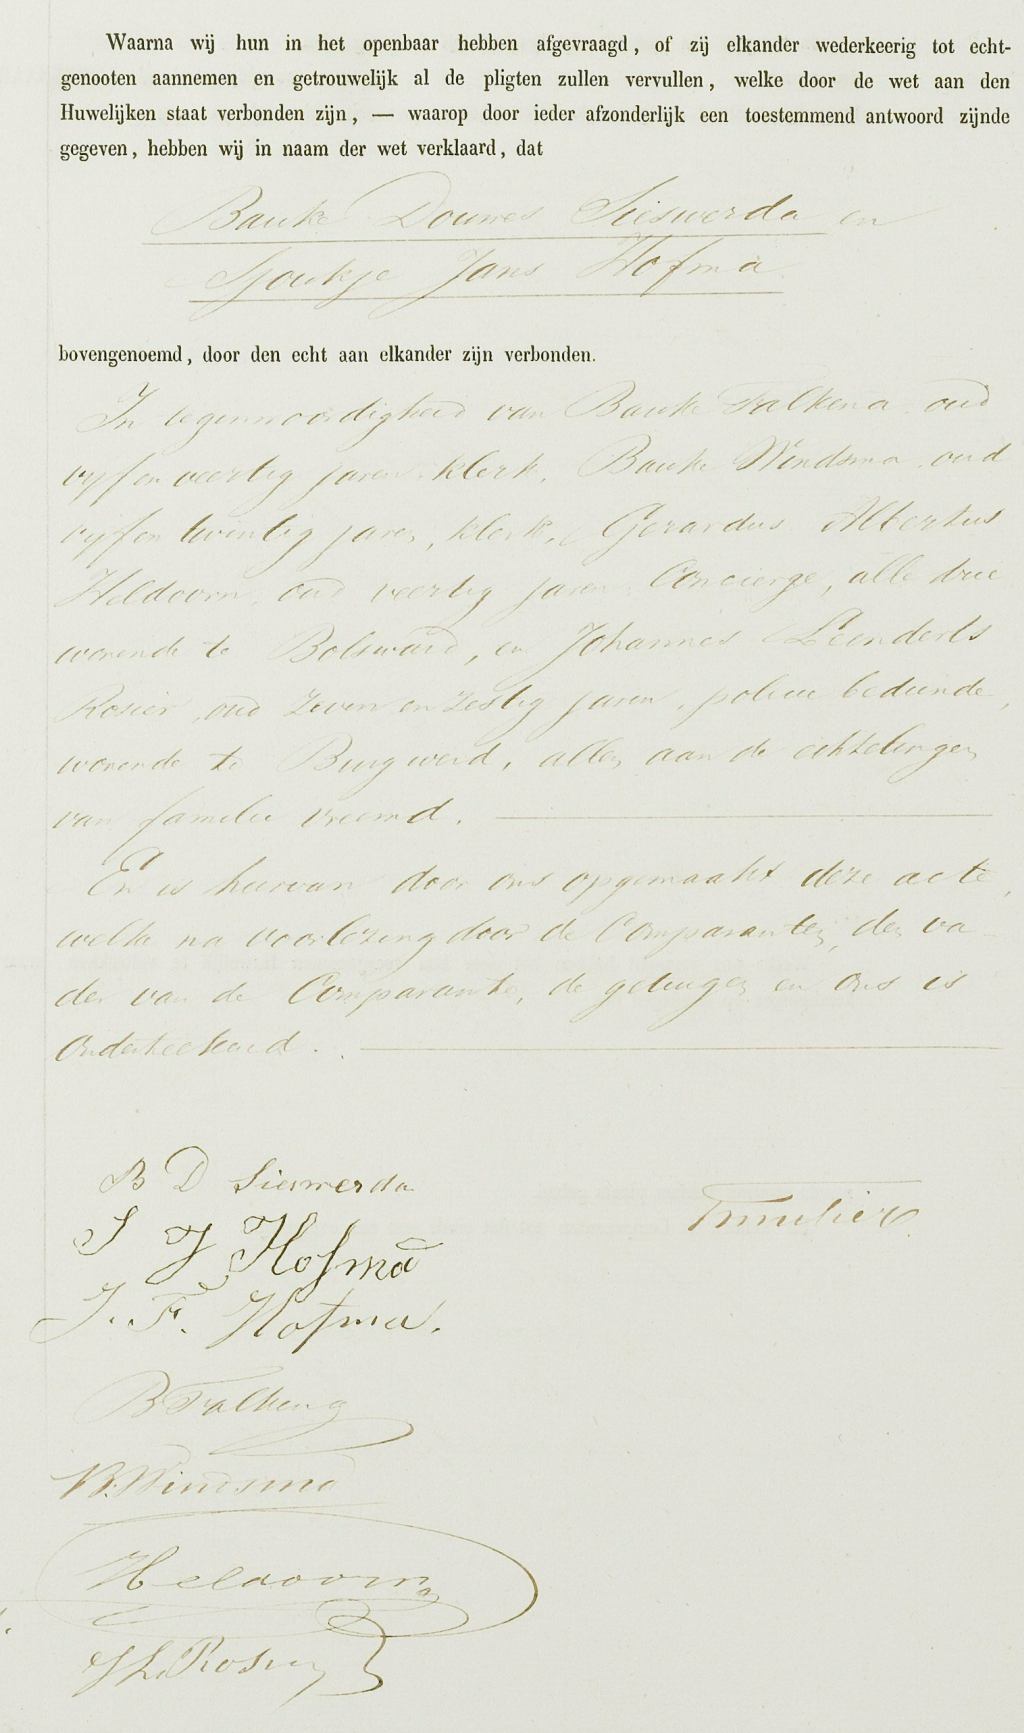 Waarna wij hun in het openbaar hebben afgevraagd, of zij elkander wederkeerig tot echt-
genooten aannemen en getrouwelijk al de pligten zullen vervullen, welke door de wet aan den
Huwelijken staat verbonden zijn, — waarop door ieder afzonderlijk een toestemmend antwoord zijnde
gegeven, hebben wij in naam der wet verklaard, dat
Bauke Douwes Sieswerda en
Sjoukje Jans Hofma
bovengenoemd, door den echt aan elkander zijn verbonden.
In tegenwoordigheid van Bauke Falkena, oud
vijf en veertig jaren, klerk, Bauke Windsma, oud
vijf en twintig jaren, klerk, Gerardus Albertus
Heldoorn, oud veertig jaren, Concierge, alle drie
wonende te Bolsward, en Johannes Leenderts
Rosier, oud zeven en zestig jaren, policie bediende,
wonende te Burgwerd, allen aan de echtelingen
van familie vreemd.
En is hiervan door ons opgemaakt deze acte,
welke na voorlezing door de Comparanten, den va-
der van de Comparante, de getuigen en ons is
Onderteekend.
B D Sieswerda
S J Hofma
J. F. Hofma.
B Falkena
B. Windsma
Heldoorn
J L Rosier